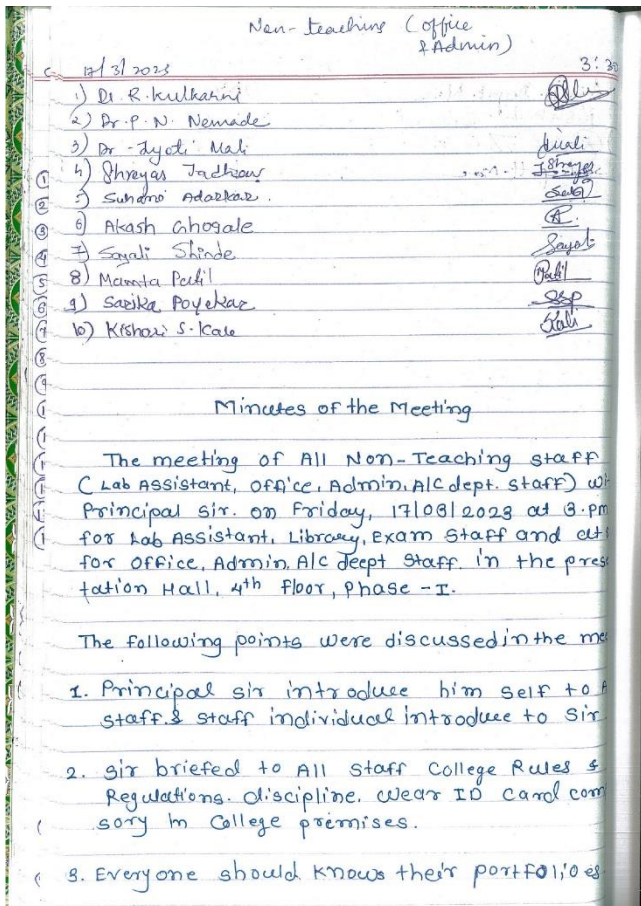 Non-teaching (office
& Admin)
17/3/2023 3:30
1) Dr. R. Kulkarni
2) Dr. P. N. Nemade
3) Dr. Jyoti Mali
4) Shreyas Jadhav
5) Adarkar.
6) Akash Ghogale
7) Sayali Shinde
8) Mamta Patil Patil
9) Sarika Poyekar SSP
10) Kishori S. Kale
Minutes of the Meeting
The meeting of All Non-Teaching staff
(Lab Assistant, Office, Admin, A/C dept. staff) wi
Principal sir. on Friday, 17/03/2023 at 3.pm
for Lab Assistant, Library, Exam Staff and at
for office, Admin, A/C Deept Staff. in the pres
tation Hall, 4th floor, Phase - I.
The following points were discussed in the me
1. Principal sir introduce him self to A
staff. & staff individual introduce to Sir
2. Sir briefed to All Staff College Rules &
Regulations. discipline. wear ID Card com
sory in College premises.
3. Everyone should knows their portfolioes